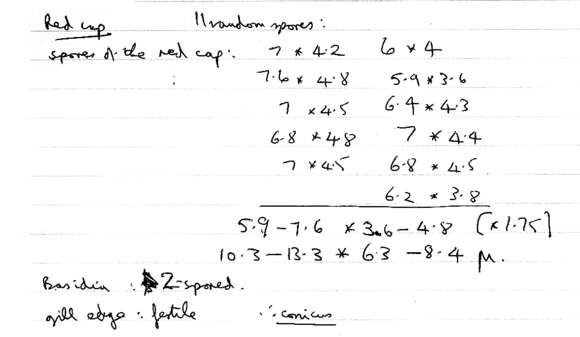 Red cup 11 random spores:
spores of the red cap: 7 * 4.2 6 * 4
: 7.6 * 4.8 5.9 * 3.6
7 * 4.5 6.4 * 4.3
6.8 * 4.8 7 * 4.4
7 * 4.5 6.8 * 4.5
6.2 * 3.8
5.9 - 7.6 * 3.6 - 4.8 (* 1.75)
10.3 - 13.3 * 6.3 - 8.4 μ.
Basidia : 2-spored.
gill edge : fertile ∴ conicus